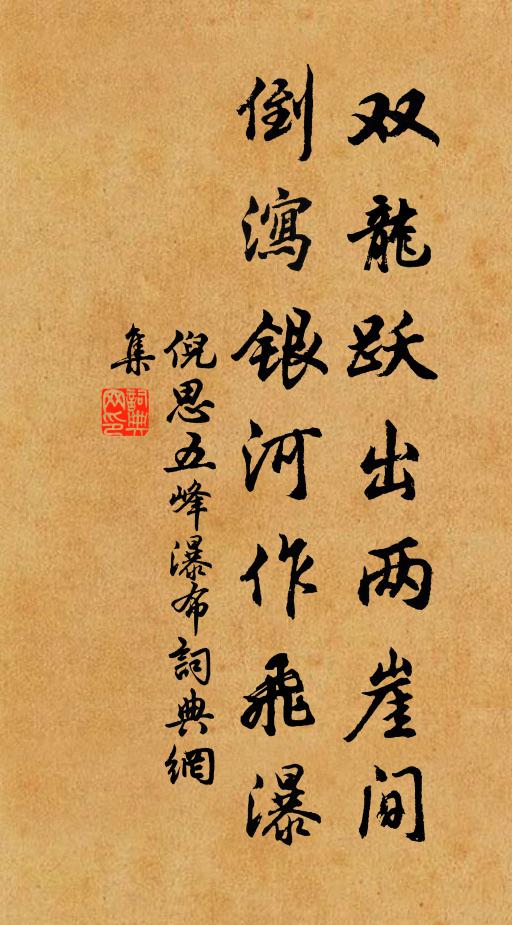 双龍跃出两崖间
倒瀉银河作飛瀑
倪思五峰瀑布詞典網
集
詞典
网印